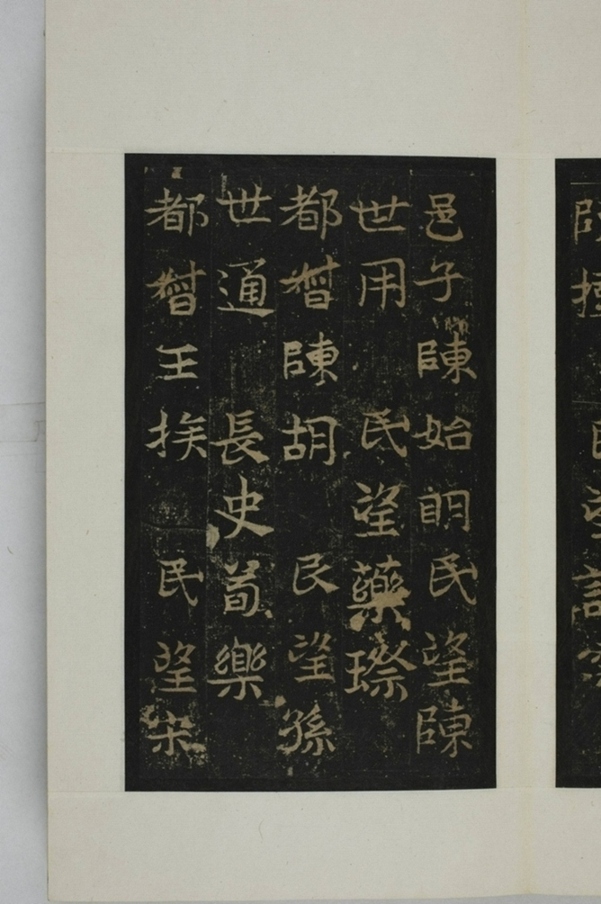 邑子陳始眀民望陳
世用 民望藥璨
都督陳胡 民望孫
世通 長史荀樂
都督王挨 民望宋